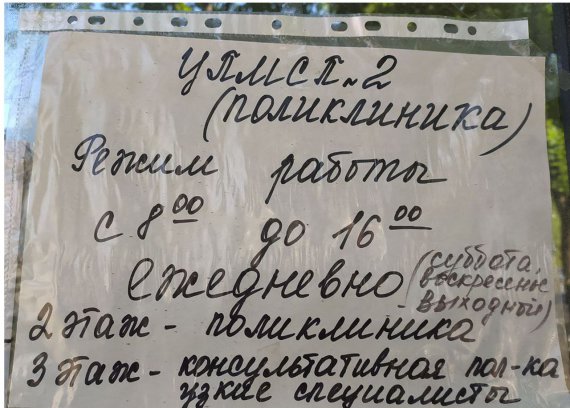 ЦПМСП №2
(поликлиника)
Режим работы
с 8 00 до 16 00
ежедневно (суббота,
воскресенье
выходной)
2 этаж - поликлиника
3 этаж - консультативная пол-ка
узкие специалисты